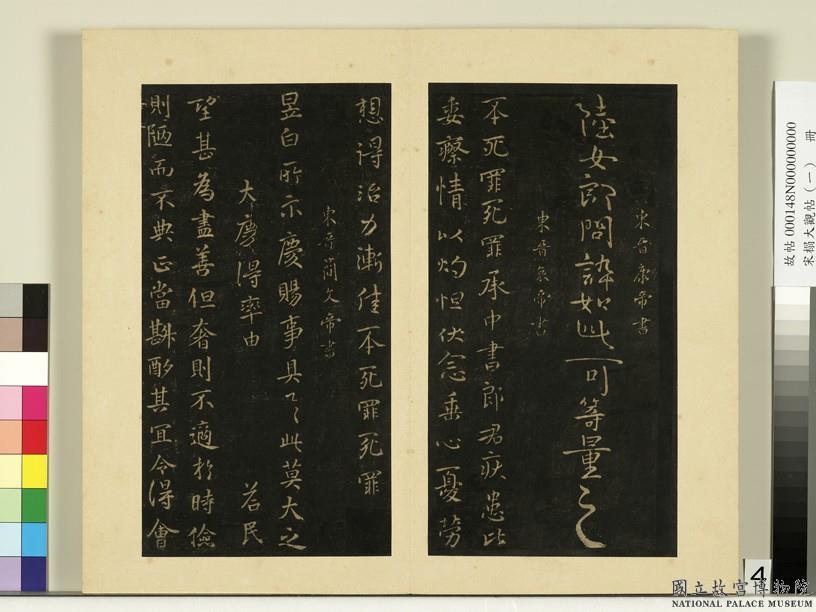 東晉康帝書
陸女郎問許如此可等量
東晉哀帝書
不死罪死罪承中書郎君疾患比
委療情以灼怛伏念垂心憂勞
想得治力漸佳不死罪死罪
東晉簡文帝書
昱白所示慶賜事具之此莫大之
大慶得率由 若民
望甚為盡善但奢則不適於時儉
則陋而不典正當斟酌其宜令得會
故帖 000148N000000000 冊
宋搨大觀帖(一)
4
國立故宮博物院
NATIONAL PALACE MUSEUM